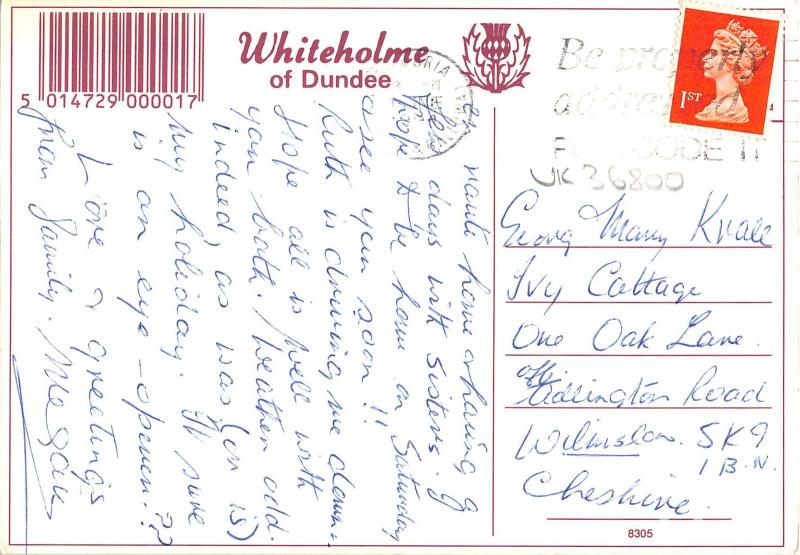 5 014729 000017
Whiteholme
of Dundee
Be properly
addressed
POSTCODE IT
1ST
UK 36800
en route home & having a
few days with sisters. I
hope to be home on Saturday
& see you soon!!
Ruth is driving me down.
Hope all is well with
you both. Weather odd
indeed, as was (or is)
my holiday. It sure
is an eye-opener!??
Love & greetings
from family. Megan
Georg Mary Kvale
Ivy Cottage
One Oak Lane
off Adlington Road
Wilmslow. SK9
1 B.N.
Cheshire.
8305